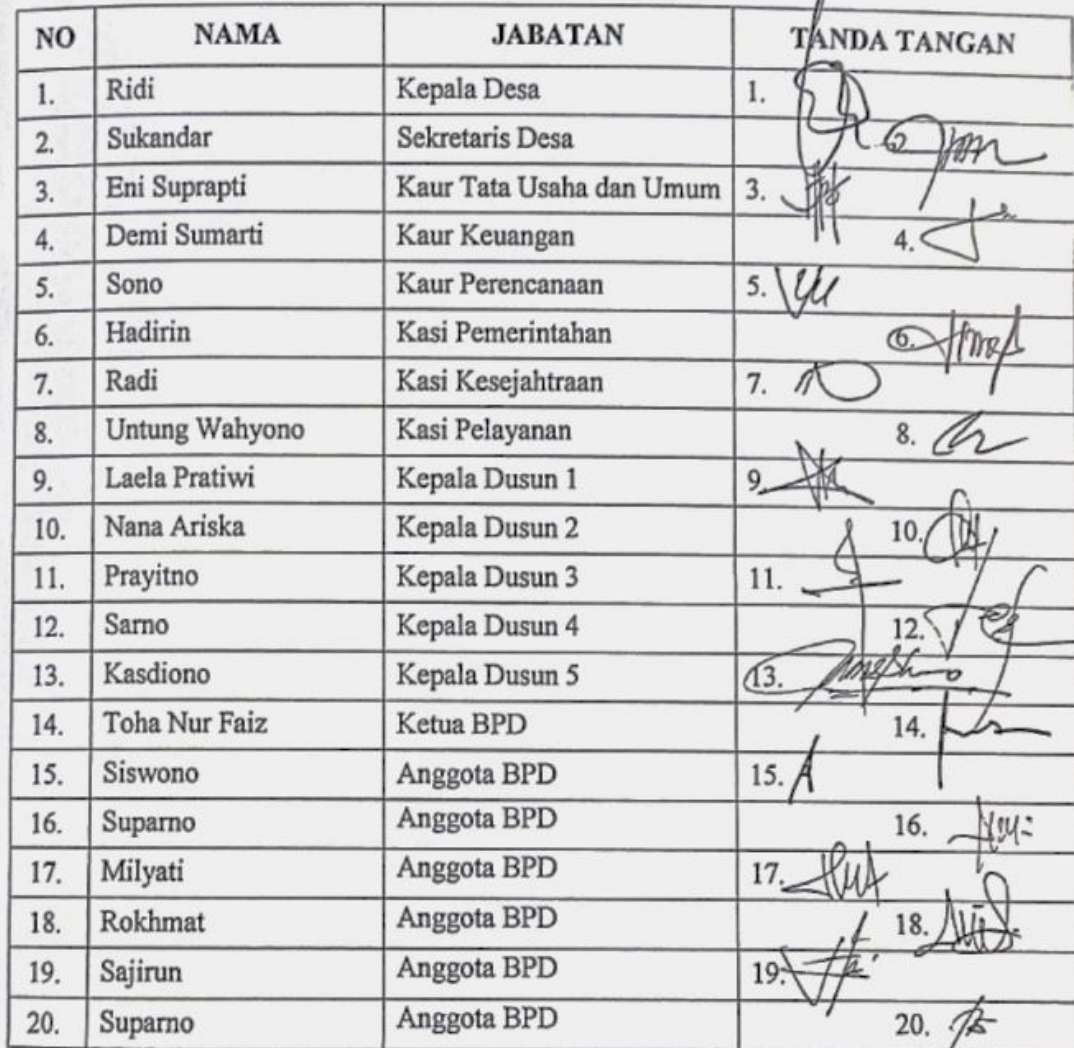 NO NAMA JABATAN TANDA TANGAN
1. Ridi Kepala Desa 1.
2. Sukandar Sekretaris Desa 2.
3. Eni Suprapti Kaur Tata Usaha dan Umum 3.
4. Demi Sumarti Kaur Keuangan 4.
5. Sono Kaur Perencanaan 5.
6. Hadirin Kasi Pemerintahan 6.
7. Radi Kasi Kesejahtraan 7.
8. Untung Wahyono Kasi Pelayanan 8.
9. Laela Pratiwi Kepala Dusun 1 9.
10. Nana Ariska Kepala Dusun 2 10.
11. Prayitno Kepala Dusun 3 11.
12. Sarno Kepala Dusun 4 12.
13. Kasdiono Kepala Dusun 5 13.
14. Toha Nur Faiz Ketua BPD 14.
15. Siswono Anggota BPD 15.
16. Suparno Anggota BPD 16.
17. Milyati Anggota BPD 17.
18. Rokhmat Anggota BPD 18.
19. Sajirun Anggota BPD 19.
20. Suparno Anggota BPD 20.